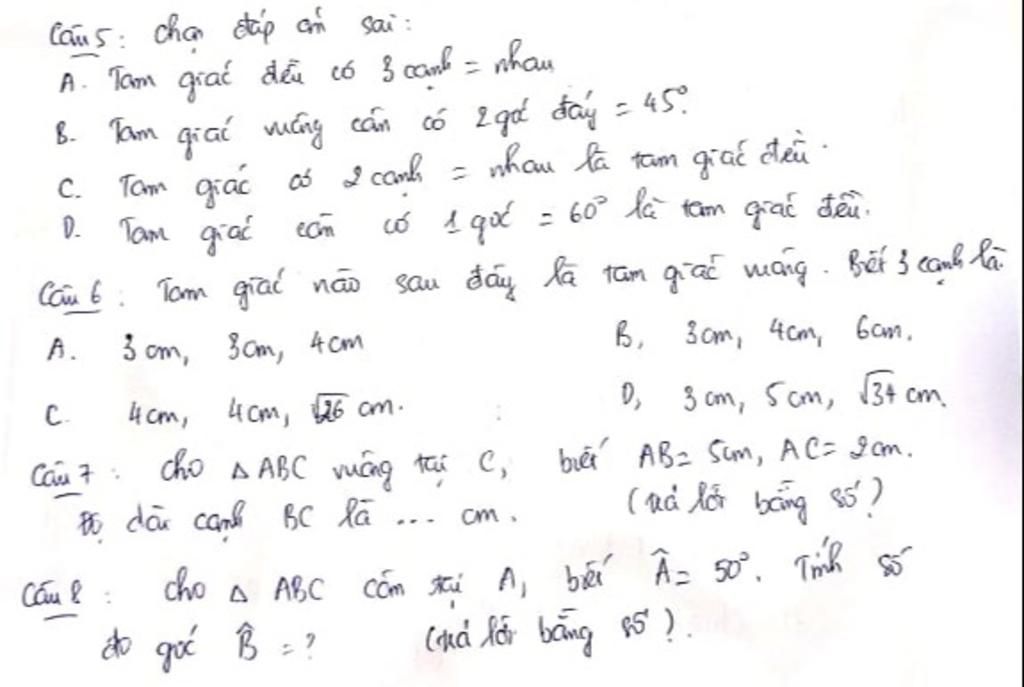 Câu 5: chọn đáp án sai:
A. Tam giác đều có 3 cạnh = nhau
B. Tam giác vuông cân có 2 góc đáy = 45°.
C. Tam giác có 2 cạnh = nhau là tam giác đều.
D. Tam giác cân có 1 góc = 60° là tam giác đều.
Câu 6: Tam giác nào sau đây là tam giác vuông. Biết 3 cạnh là
A. 3cm, 3cm, 4cm B, 3cm, 4cm, 6cm.
C. 4cm, 4cm, √26 cm. D, 3cm, 5cm, √34 cm.
Câu 7: Cho △ABC vuông tại C, biết AB = 5cm, AC = 2cm.
Độ dài cạnh BC là ... cm. (trả lời bằng số?)
Câu 8: Cho △ABC cân tại A, biết Â = 50°. Tính số
đo góc B̂ = ? (trả lời bằng số?).